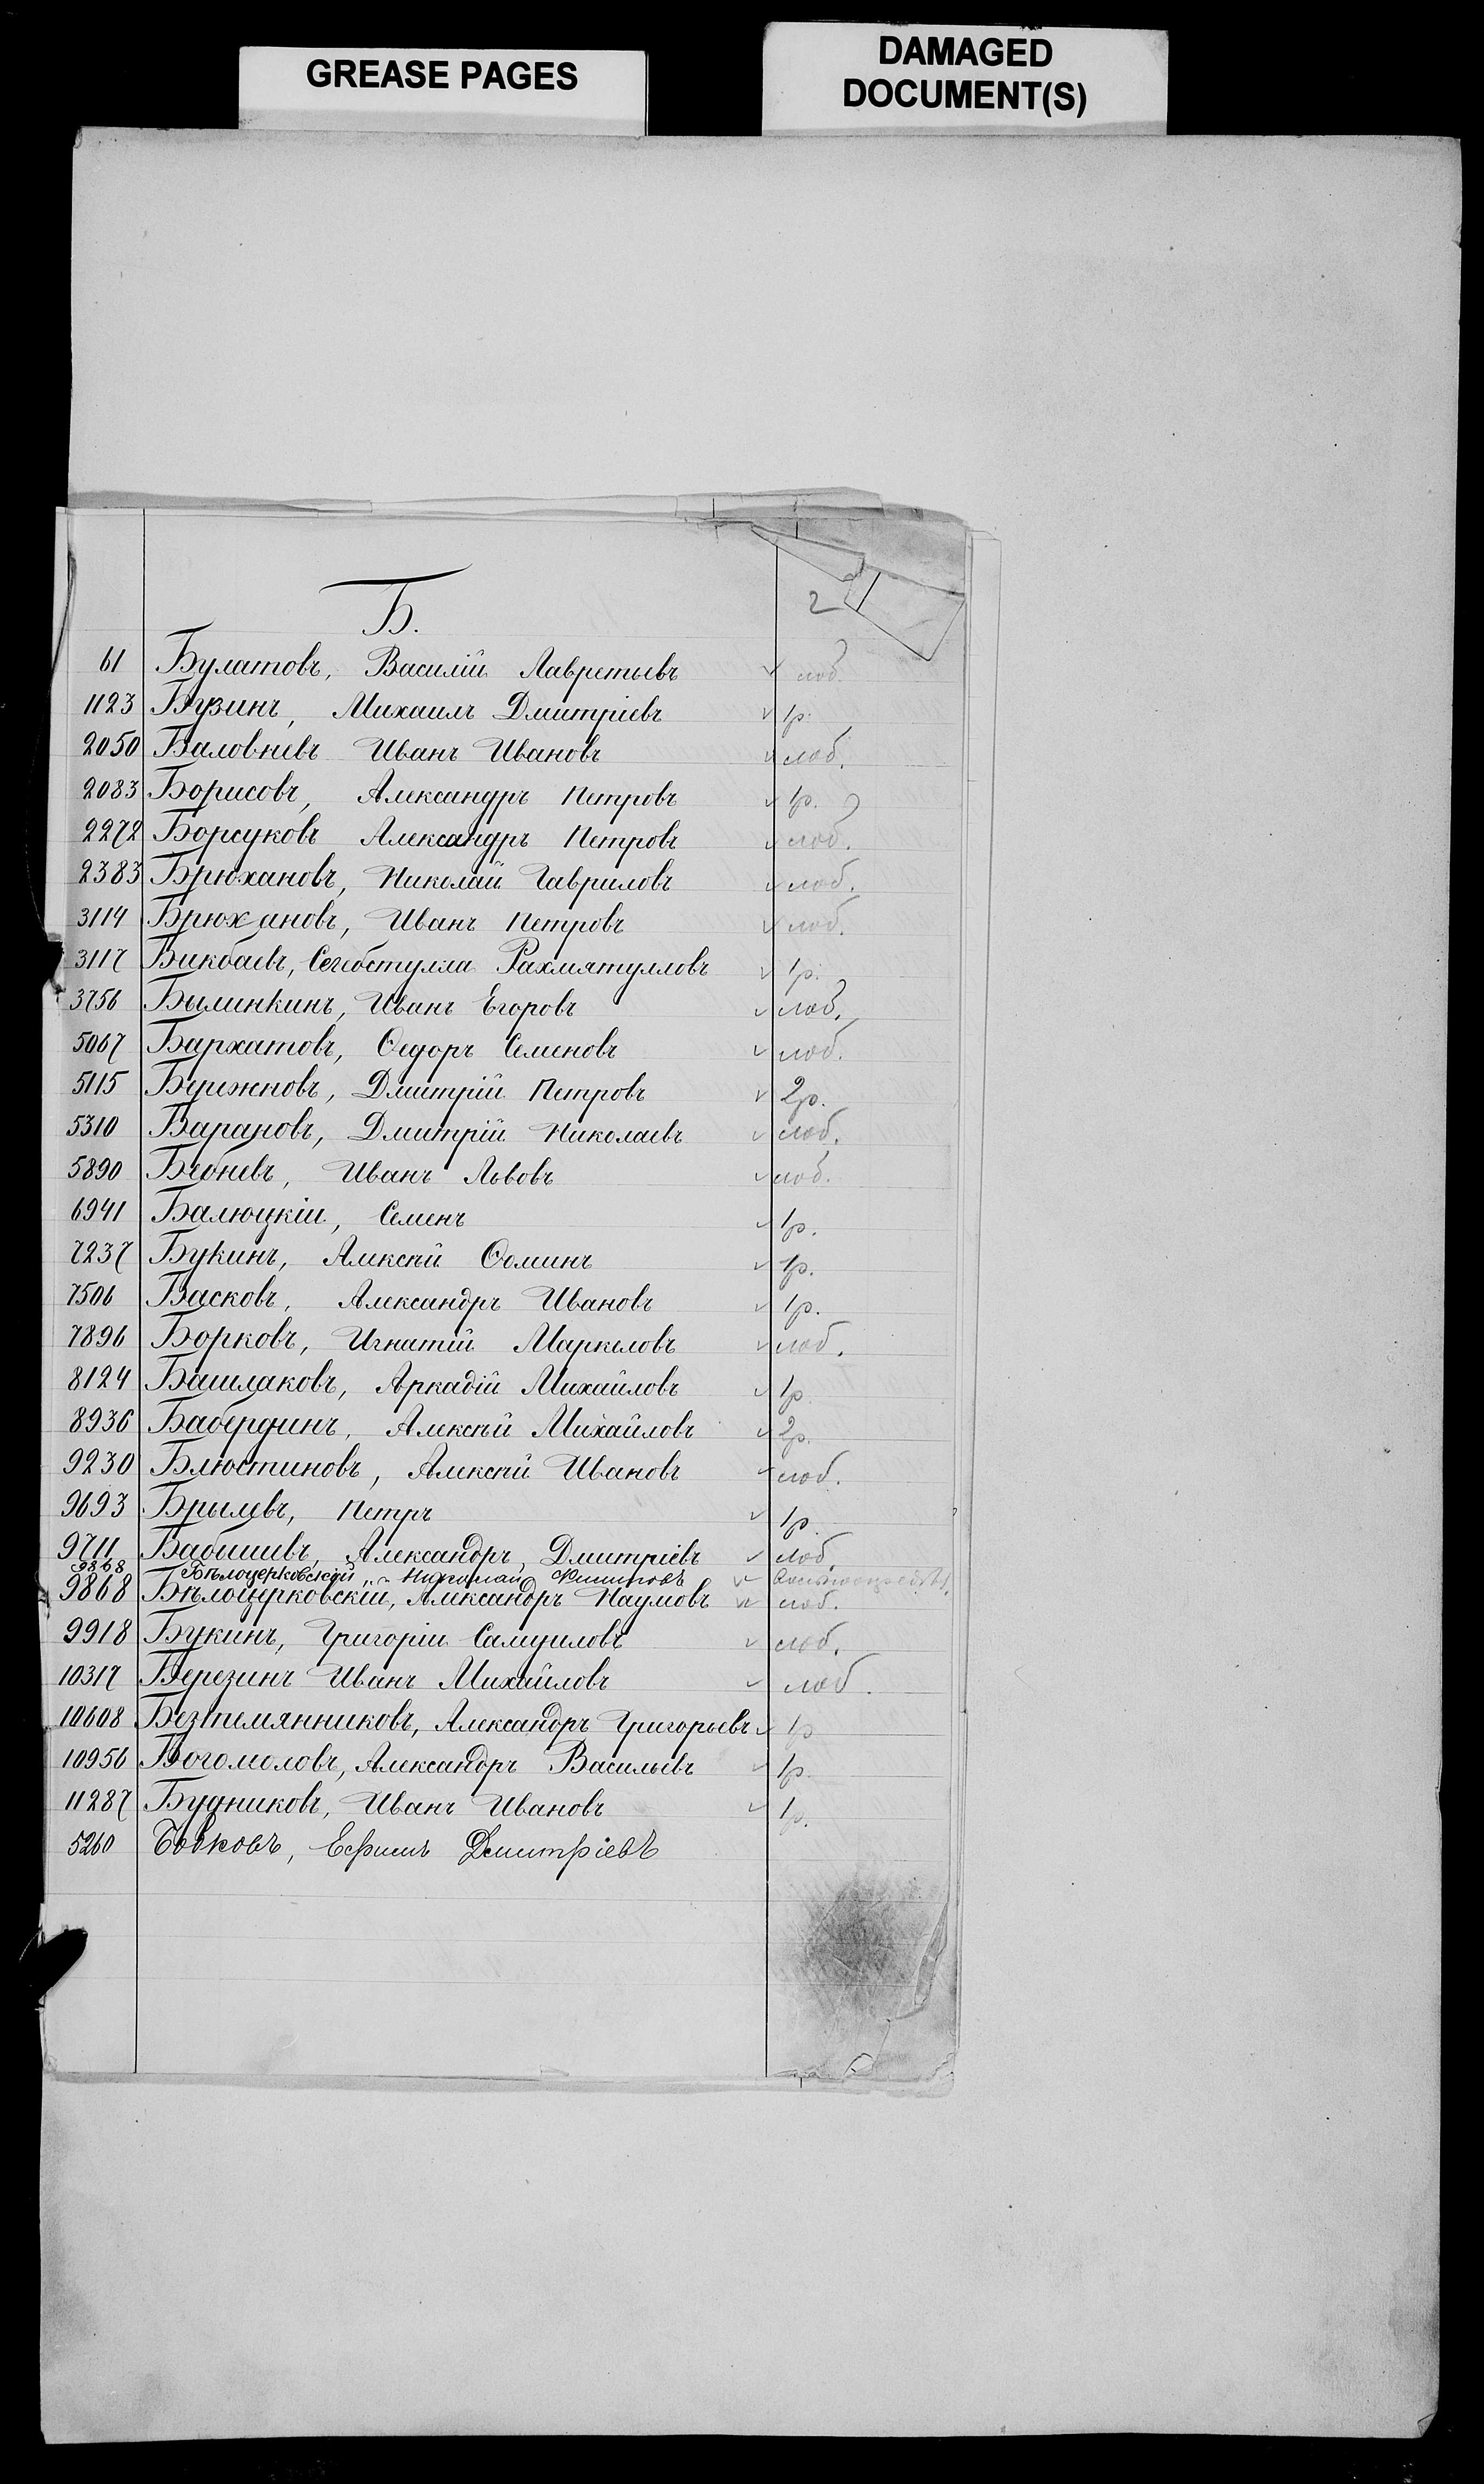 GREASE PAGES
DAMAGED
DOCUMENT(S)
2
Б.
61 Булатовъ, Василій Лаврентьевъ ✓ люб.
1123 Бузинъ, Михаилъ Дмитріевъ ✓ 1р.
2050 Баловневъ Иванъ Ивановъ ✓ люб.
2083 Борисовъ, Александръ Петровъ ✓ 1р.
2272 Борсуковъ Александръ Петровъ ✓ люб.
2383 Брюхановъ, Николай Гавриловъ ✓ люб.
3114 Брюхановъ, Иванъ Петровъ ✓ люб.
3117 Бикбаевъ, Рахмятулловъ ✓ 1р.
3756 Былинкинъ, Иванъ Егоровъ ✓ люб.
5067 Бархатовъ, Ѳедоръ Семеновъ ✓ люб.
5115 Бережновъ, Дмитрій Петровъ ✓ 2р.
5310 Барановъ, Дмитрій Николаевъ ✓ люб.
5890 Бебневъ, Иванъ Львовъ ✓ люб.
6941 Балюцкій, Семенъ ✓ 1р.
7237 Букинъ, Алексѣй Ѳоминъ ✓ 1р.
7506 Басковъ, Александръ Ивановъ ✓ 1р.
7896 Борковъ, Игнатій Маркеловъ ✓ люб.
8124 Башлаковъ, Аркадій Михайловъ ✓ 1р
8936 Бабердинъ, Алексѣй Михайловъ ✓ 2р.
9230 Блюстиновъ, Алексѣй Ивановъ ✓ люб.
9693 Брылевъ, Петръ ✓ 1р.
9711 Бабишевъ, Александръ, Дмитріевъ ✓ люб.
9868 Бѣлоцерковскій Николай Филиповъ ✓
9868 Бѣлоцерковскій, Александръ Наумовъ ✓ люб.
9918 Букинъ, Григорій Самуиловъ ✓ люб.
10317 Березинъ Иванъ Михайловъ ✓ люб.
10608 Безпемянниковъ, Александръ Григорьевъ ✓ 1р
10956 Богомоловъ, Александръ Васильевъ ✓ 1р.
11287 Будниковъ, Иванъ Ивановъ ✓ 1р.
5260 Бобковъ, Ефимъ Дмитріевъ